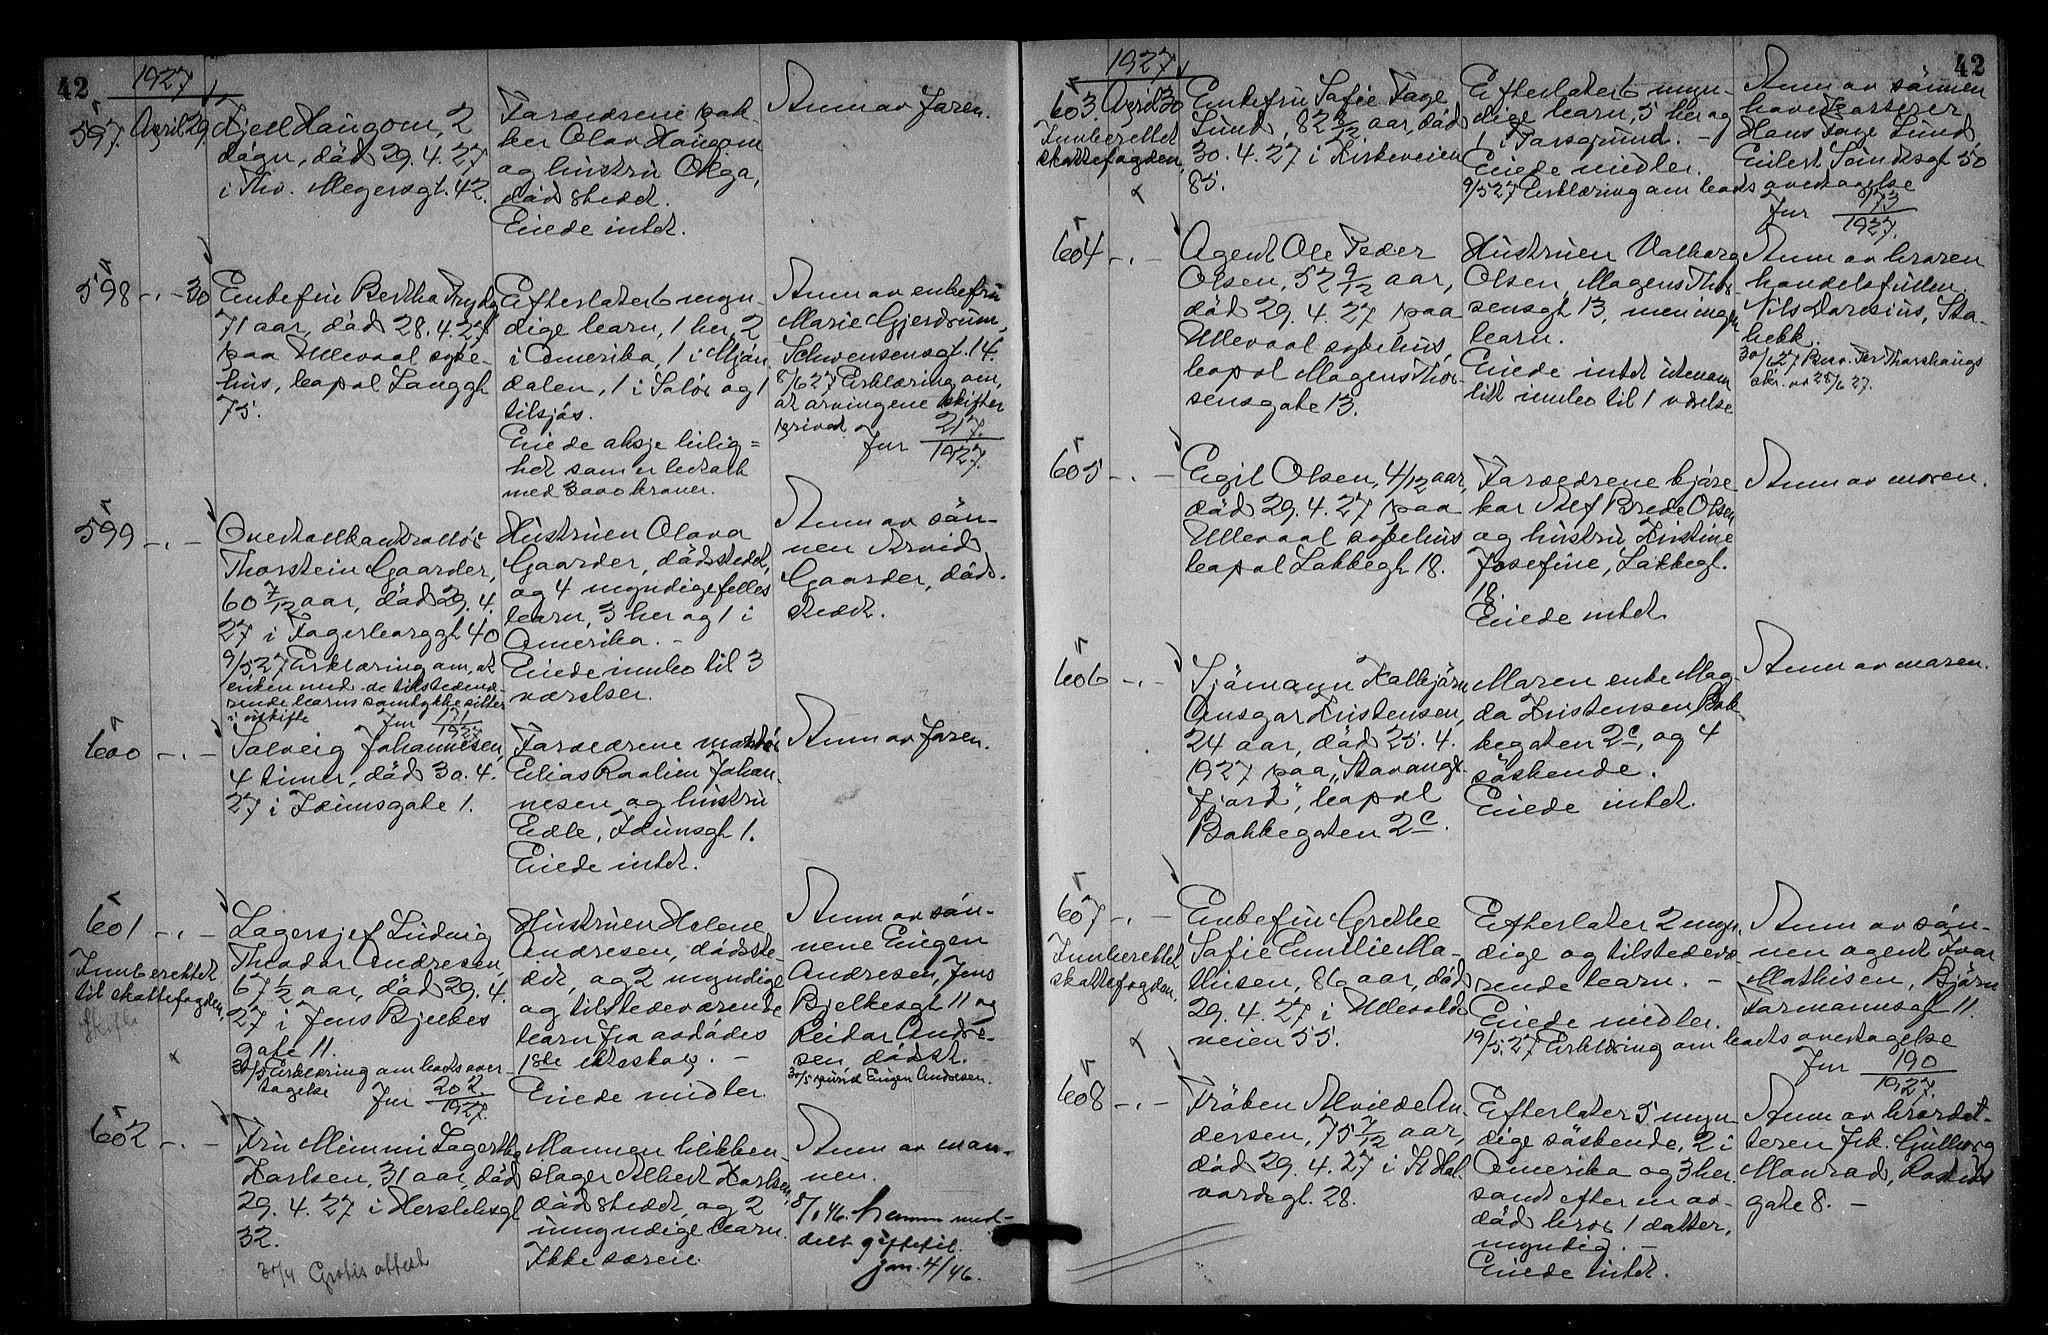 42
1927
597. April 29.
Kjell Haugom, 2
døgn, død 29.4.27
i Thv. Meyersgt. 42.
Forældrene pak-
ker Olav Haugom
og hustru Olga,
dødstedet.
Eiede intet.
Anm av faren.
598 -.- 30
Enkefru Bertha
71 aar, død 28.4.27
paa Ullevaal syke-
hus, bopæl Langgt.
75.
Efterlater 6 myn-
dige barn, 1 her, 2
i Amerika, 1 i Mjøn
dalen, 1 i Solør og 1
tilsjøs.
Eiede aksje leilig=
het som er betalt
med 3000 kroner.
Anm av enkefru
Marie Gjerdrum,
Schwensensgt. 14.
8/6 27 Erklæring om,
at arvingene skifter
privat.
Jnr 217
1927.
599 -.-
Overtollkontrollør
Thorstein Gaarder,
60 7/12 aar, død 29.4.
27 i Fagerborggt 40
9/5 27 Erklæring om, at
enken med de tilstedevæ-
rende barns samtykke sitter
i uskifte Jnr 171
1927
Hustruen Olava
Gaarder, dødsstedet,
og 4 myndige felles
barn, 3 her og 1 i
Amerika. -
Eiede innbo til 3
værelser.
Anm av søn-
nen Arvid
Gaarder, død-
stedet.
600 -.-
Solveig Johannesen,
4 timer, død 30.4.
27 i Idunsgate 1.
Forældrene
Elias Roalien Johan-
nesen og hustru
Edle, Idunsgt 1.
Eiede intet.
Anm av faren.
601 -.-
Innberettet
til skattefogden.
Lagersjef Ludvig
Theodor Andresen,
67 1/2 aar, død 29.4.
27 i Jens Bjelkes
gate 11.
30/5 Erklæring om boets over-
tagelse Jnr 202
1927.
Hustruen Helene
Andresen, dødsste-
det, og 2 myndige
og tilstedeværende
barn fra avdødes
1ste ekteskap. -
Eiede midler.
Anm av søn-
nene Eugen
Andresen, Jens
Bjelkesgt 11 og
Reidar Andre-
sen, dødst.
30/5 Eugen Andresen.
602 -.-
Fru Mimmi Lagertha
Karlsen, 31 aar, død
29.4.27 i Herslebsgt
32.
30/4 Gratis attest
Mannen blikken-
slager Albert Karlsen,
dødstedet, og 2
umyndige barn.
Ikke særeie.
Anm av man-
nen.
8/1 46. hanm med-
delt giftetil.
jnr. 4/46.
42
1927
603. April 30
Innberettet
skattefogden.
Enkefru Sofie Faye
Lund, 82 8/12 aar, død
30.4.27 i Kirkeveien
85.
Efterlater 6 myn-
dige barn, 5 her og
1 i Porsgrund. -
Eiede midler.
9/5 27 Erklæring om boets overtagelse
Anm av sønnen
hovedkasserer
Hans Faye Lund,
Eilert Sundtsgt 50
Jnr 173
1927.
604 -.-
Agent Ole Peder
Olsen, 52 9/12 aar,
død 29.4.27 paa
Ullevaal sykehus,
bopæl Mogens Thor-
sensgate 13.
Hustruen Valborg
Olsen, Mogens Thor
sensgt 13, men ingen
barn.
Eiede intet utenom
litt innbo til 1 værelse
Anm av broren
handelsfullm.
Nils Paresius, Sta-
bekk.
30/6 27 Thorshaugs
skr. av 28/6 27.
605 -.-
Egil Olsen, 4/12 aar,
død 29.4.27 paa
Ullevaal sykehus
bopæl Lakkegt. 18.
Forældrene kjøre
kar Alf Brede Olsen
og hustru Kristine
Josefine, Lakkegt.
18.
Eiede intet.
Anm av moren.
606 -.-
Sjømann Kolbjørn
Ansgar Kristensen,
24 aar, død 25.4.
1927 paa "Stavanger-
fjord", bopæl
Bakkegaten 2c.
Moren enke Mag-
da Kristensen, Bak-
kegaten 2c, og 4
søskende.
Eiede intet.
Anm av moren.
607 -.-
Innberettet
skattefogden.
Enkefru Grethe
Sofie Emilie Ma-
thisen, 86 aar, død
29.4.27 i Ullevolds-
veien 55.
Efterlater 2 myn-
dige og tilstedevæ
rende barn. -
Eiede midler.
19/5.27 Erklæring om boets overtagelse
Anm av søn-
nen agent Ivar
Mathisen, Bjørn
Farmannsgt 11.
Jnr 190
1927.
608 -.-
Frøken Alvilde An-
dersen, 75 7/12 aar,
død 29.4.27 i St Hal-
vardsgt. 28.
Efterlater 5 myn-
dige søskende, 2 i
Amerika og 3 her
samt efter en av-
død bror 1 datter,
myndig. -
Eiede intet.
Anm av brordat-
teren frk. Gudborg
Monrad,
gate 8. -